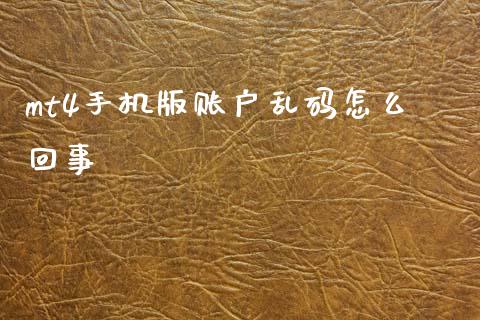 mt4手机版账户乱码怎么
回事